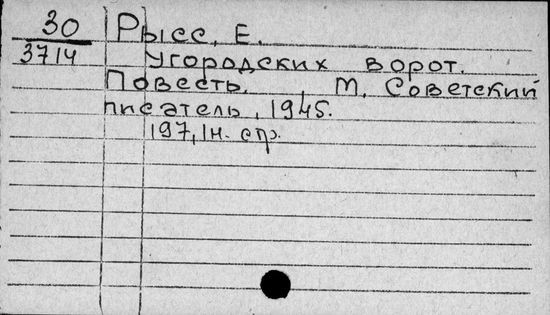 30 Рысс, Е.
3714 Угородских ворот.
Повесть. , М, Советский
писатель, 1945.
197, 1н. стр.